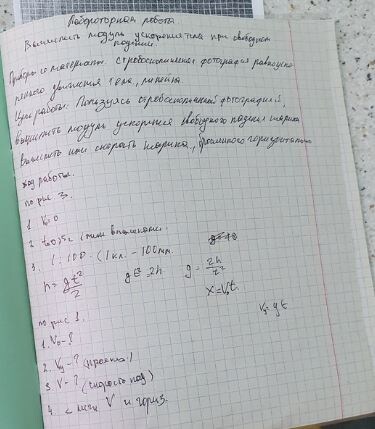 Лабораторная работа
Вычислить модуль ускорения тела при свободном
падении.
Приборы и материалы: стробоскопическая фотография
движения тела, линейка.
Цель работы: Пользуясь стробоскопической фотографией,
вычислить модуль ускорения свободного падения шарика
вычислить скорость шарика, брошенного горизонтально
Ход работы.
по рис 3.
1. V₀=0
2.
3. 1:100 (1кл - 100мм.
h = gt²/2 gt² = 2h g = 2h/t²
X=V₀t. Vy=gt
по рис 1.
1. V₀-?
2. Vy-?
3. V-? (скорость
4. < V и гориз.